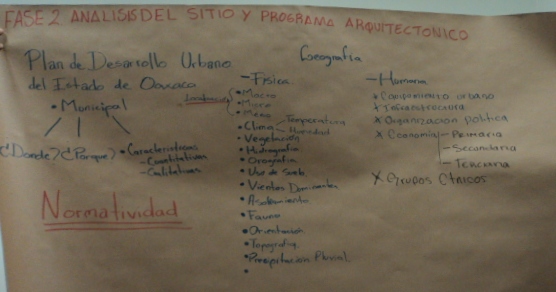 FASE 2 ANALISIS DEL SITIO Y PROGRAMA ARQUITECTONICO
Plan de Desarrollo Urbano
del Estado de Oaxaca
• Municipal
¿Donde? ¿Porque? • Caracteristicas
- Cuantitativas
- Cualitativas
Normatividad
Geografia
- Fisica
• Macro
• Micro
• Clima - Temperatura
- Humedad
• Vegetación
• Hidrografia
• Orografia
• Uso de Suelo
• Vientos Dominantes
• Asoleamiento
• Fauna
• Orientación
• Topografia
• Precipitación Pluvial
•
- Humana
x Equipamiento urbano
x Infraestructura
x Organización politica
x Economia - Primaria
- Secundaria
- Terciaria
x Grupos Etnicos